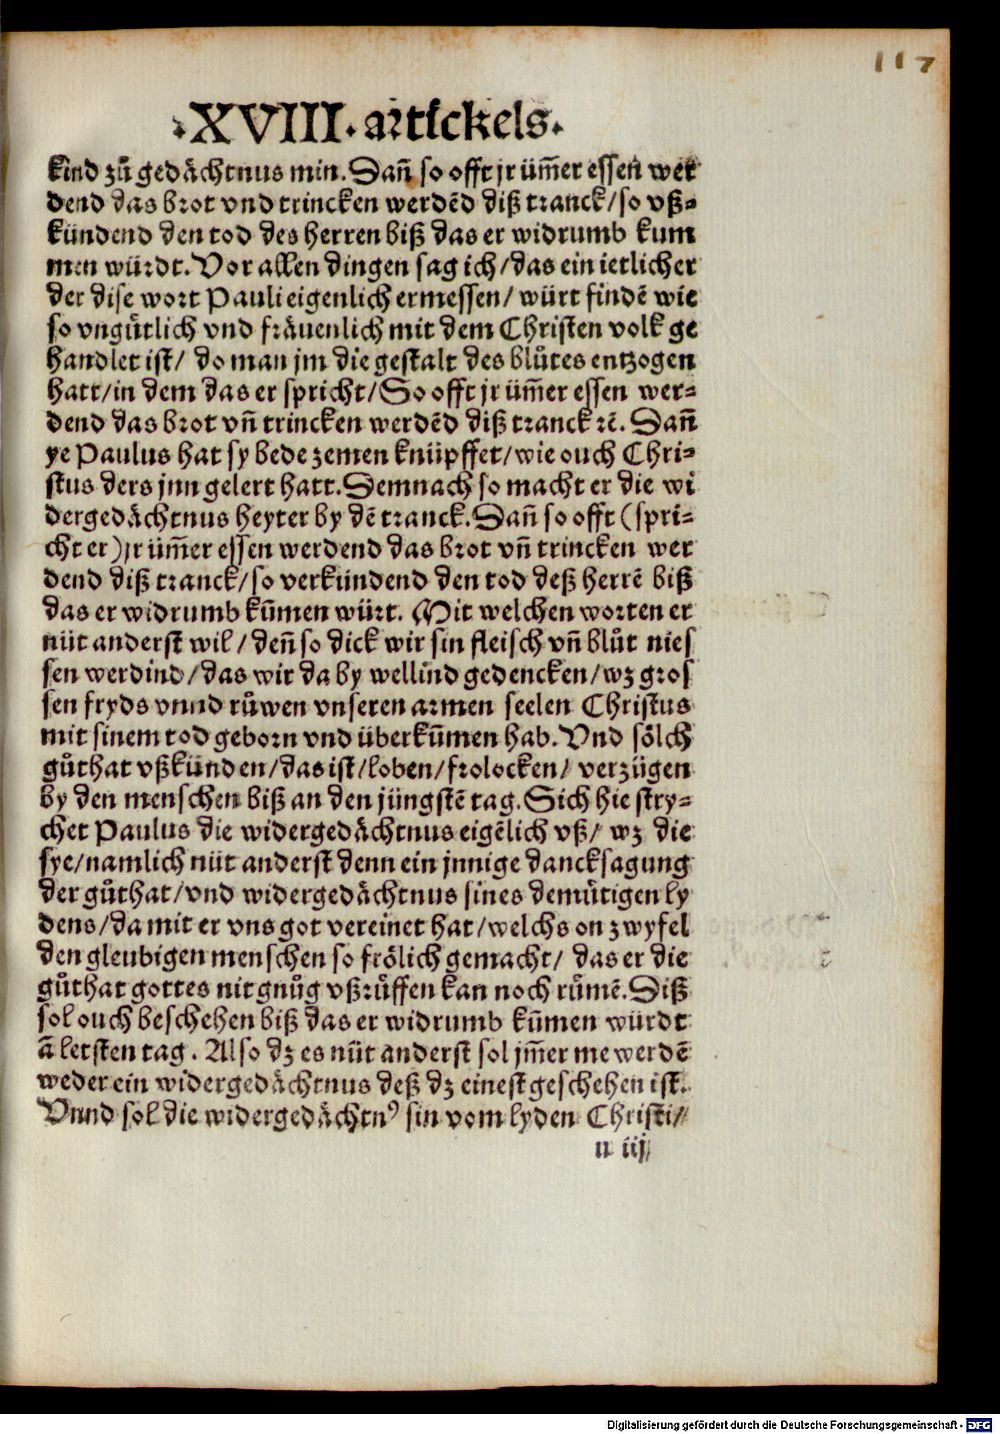 117
·XVIII·artickels·
kind zů gedächtnus min. Dañ so offt jr üm̃er essen wer
dend das brot vnd trincken werdēd diß tranck/so vß⸗
kündend den tod des herren biß das er widrumb kum
men würdt. Vor allen dingen sag ich/das ein ietlicher
der dise wort Pauli eigenlich ermessen/ würt findē wie
so vngůtlich vnd fräuenlich mit dem Christen volk ge
handlet ist/ do man jm die gestalt des blůtes entzogen
hatt/in dem das er spricht/So offt jr üm̃er essen wer⸗
dend das brot vñ trincken werdēd diß tranck ꝛc̄. Dañ
ye Paulus hat sy bede zemen knüpffet/wie ouch Chri⸗
stus ders jnn gelert hatt. Demnach so macht er die wi
dergedächtnus heyter by dē tranck. Dañ so offt (spri⸗
cht er) jr üm̃er essen werdend das brot vñ trincken wer
dend diß tranck/so verkündend den tod deß herrē biß
das er widrumb kum̃en würt. Mit welchen worten er
nüt anderst wil/ deñ so dick wir sin fleisch vñ blůt nies
sen werdind/das wir da by wellind gedencken/wz gros
sen fryds vnnd růwen vnseren armen seelen Christus
mit sinem tod geborn vnd überkum̃en hab. Vnd sölch
gůthat vßkünden/das ist/loben/frolocken/ verzügen
by den menschen biß an den jüngstē tag. Sich hie stry⸗
chet Paulus die widergedächtnus eigēlich vß/ wz die
sye/namlich nüt anderst denn ein jnnige dancksagung
der gůthat/vnd widergedächtnus sines demůtigen ly
dens/da mit er vns got vereinet hat/welchs on zwyfel
den gleubigen menschen so frölich gemacht/ das er die
gůthat gottes nit gnůg vßrůffen kan noch růmē. Diß
sol ouch beschehen biß das er widrumb kum̃en würdt
ā letsten tag. Also dz es nüt anderst sol jm̃er me werdē
weder ein widergedächtnus deß dz einest geschehen ist.
Vnnd sol die widergedächtnꝰ sin vom lyden Christi/
u iij
Digitalisierung gefördert durch die Deutsche Forschungsgemeinschaft - DFG